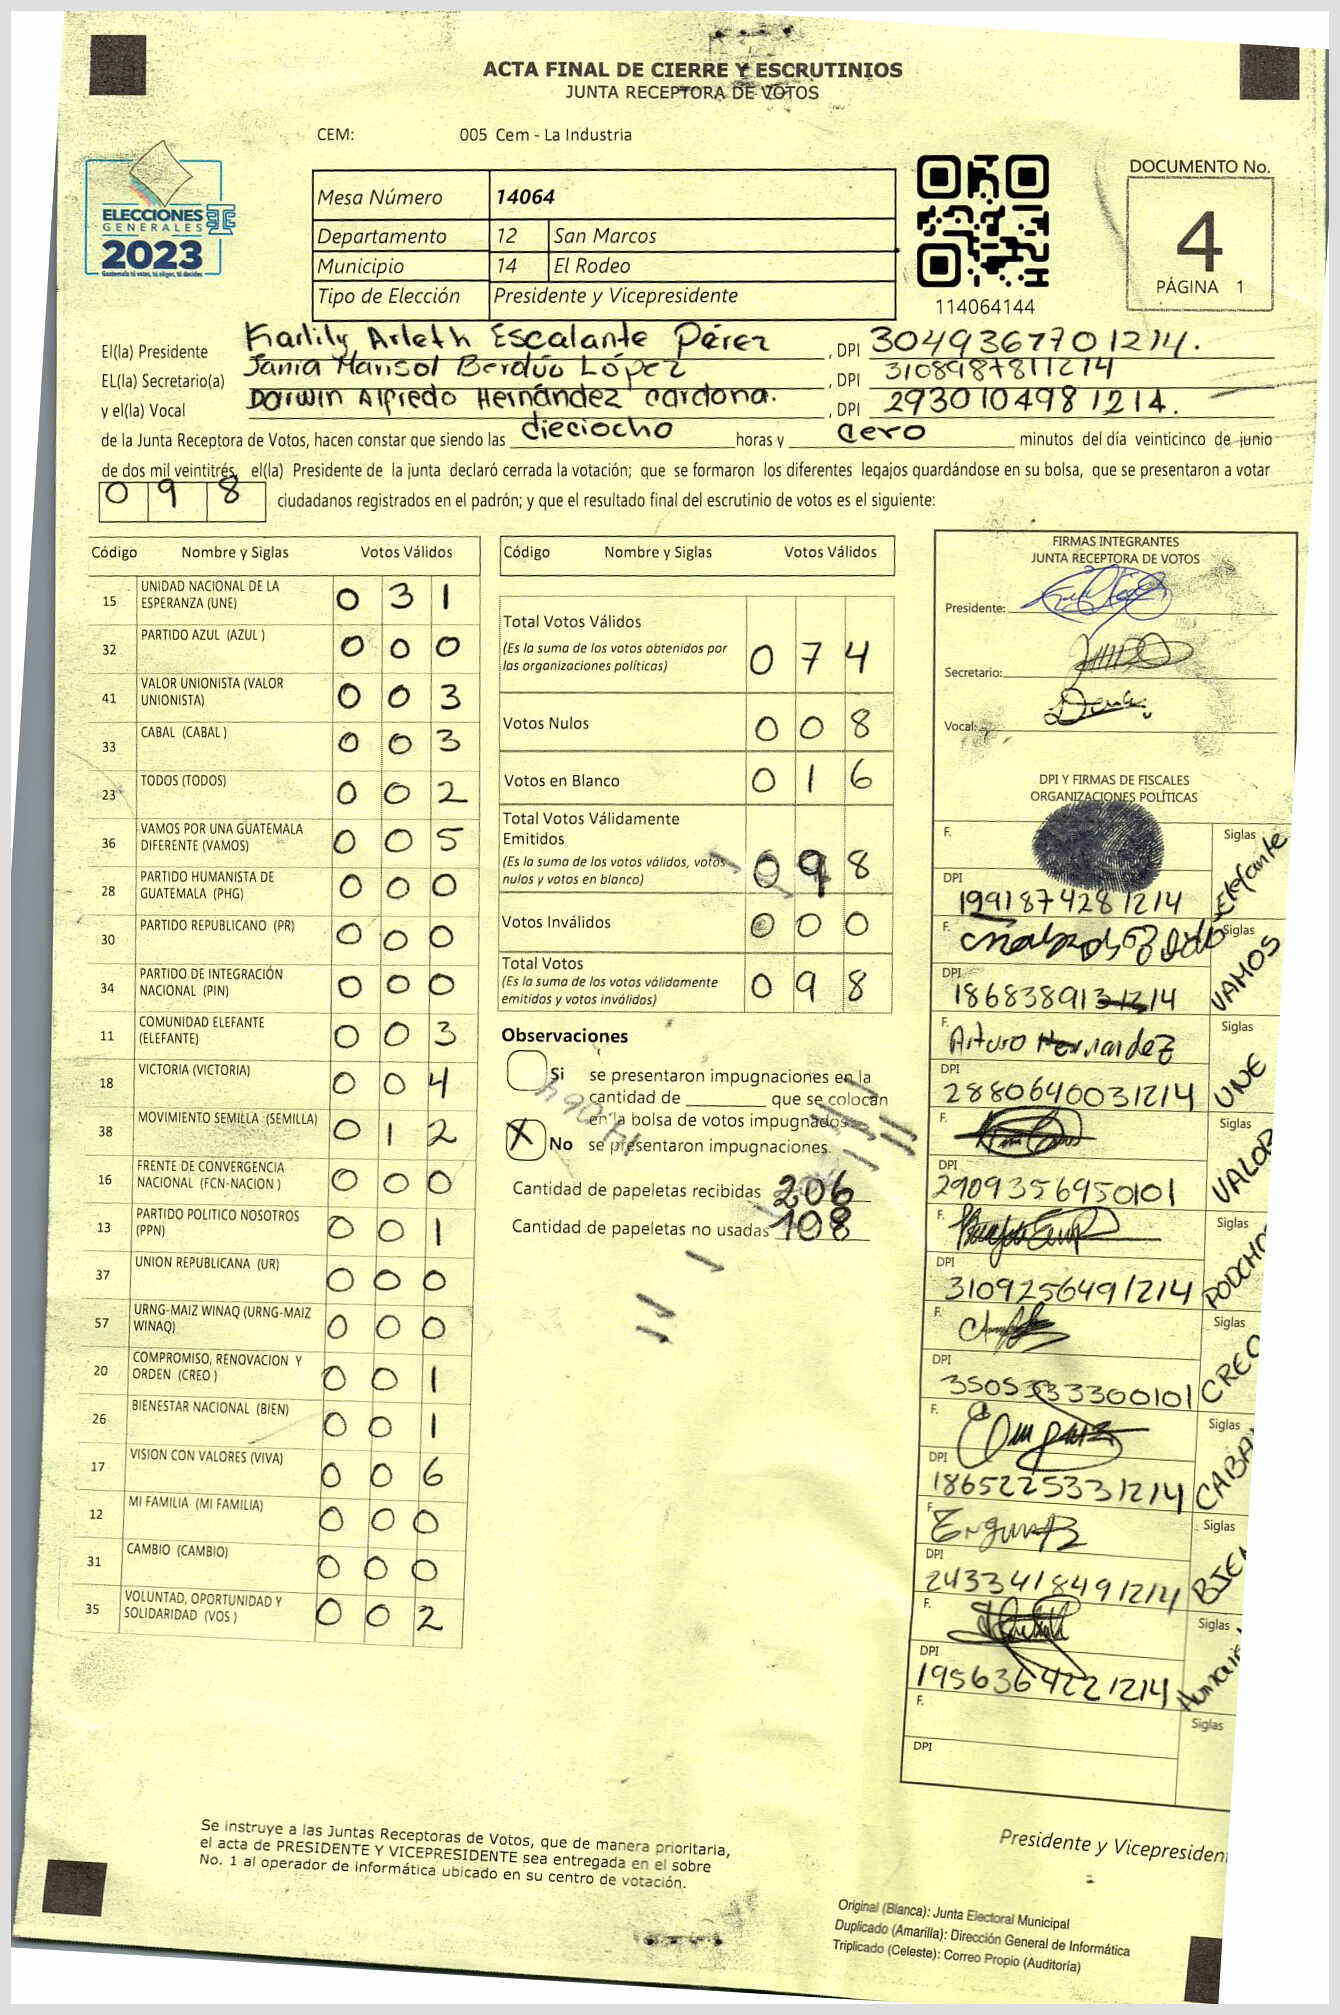 ACTA FINAL DE CIERRE Y ESCRUTINIOS
JUNTA RECEPTORA DE VOTOS
CEM: 005 Cem - La Industria
ELECCIONES
GENERALES
2023
Guatemala tú votas, tú eliges, tú decides
Mesa Número 14064
Departamento 12 San Marcos
Municipio 14 El Rodeo
Tipo de Elección Presidente y Vicepresidente
114064144
DOCUMENTO No.
4
PÁGINA 1
El(la) Presidente Karlily Arleth Escalante Pérez, DPI 3049367701214.
EL(la) Secretario(a) Jania Marisol Berdúo López, DPI 3108987811214
y el(la) Vocal Darwin Alfredo Hernández Cardona., DPI 2930104981214.
de la Junta Receptora de Votos, hacen constar que siendo las dieciocho horas y cero minutos del día veinticinco de junio
de dos mil veintitrés, el(la) Presidente de la junta declaró cerrada la votación; que se formaron los diferentes legajos guardándose en su bolsa, que se presentaron a votar
098 ciudadanos registrados en el padrón; y que el resultado final del escrutinio de votos es el siguiente:
Código Nombre y Siglas Votos Válidos
15 UNIDAD NACIONAL DE LA ESPERANZA (UNE) 0 3 1
32 PARTIDO AZUL (AZUL ) 0 0 0
41 VALOR UNIONISTA (VALOR UNIONISTA) 0 0 3
33 CABAL (CABAL ) 0 0 3
23 TODOS (TODOS) 0 0 2
36 VAMOS POR UNA GUATEMALA DIFERENTE (VAMOS) 0 0 5
28 PARTIDO HUMANISTA DE GUATEMALA (PHG) 0 0 0
30 PARTIDO REPUBLICANO (PR) 0 0 0
34 PARTIDO DE INTEGRACIÓN NACIONAL (PIN) 0 0 0
11 COMUNIDAD ELEFANTE (ELEFANTE) 0 0 3
18 VICTORIA (VICTORIA) 0 0 4
38 MOVIMIENTO SEMILLA (SEMILLA) 0 1 2
16 FRENTE DE CONVERGENCIA NACIONAL (FCN-NACION ) 0 0 0
13 PARTIDO POLITICO NOSOTROS (PPN) 0 0 1
37 UNION REPUBLICANA (UR) 0 0 0
57 URNG-MAIZ WINAQ (URNG-MAIZ WINAQ) 0 0 0
20 COMPROMISO, RENOVACION Y ORDEN (CREO ) 0 0 1
26 BIENESTAR NACIONAL (BIEN) 0 0 1
17 VISION CON VALORES (VIVA) 0 0 6
12 MI FAMILIA (MI FAMILIA) 0 0 0
31 CAMBIO (CAMBIO) 0 0 0
35 VOLUNTAD, OPORTUNIDAD Y SOLIDARIDAD (VOS ) 0 0 2
Código Nombre y Siglas Votos Válidos
Total Votos Válidos 0 7 4
(Es la suma de los votos obtenidos por
las organizaciones políticas)
Votos Nulos 0 0 8
Votos en Blanco 0 1 6
Total Votos Válidamente
Emitidos 0 9 8
(Es la suma de los votos válidos, votos
nulos y votos en blanco)
Votos Inválidos 0 0 0
Total Votos 0 9 8
(Es la suma de los votos válidamente
emitidos y votos inválidos)
Observaciones
Si se presentaron impugnaciones en la
cantidad de ________ que se colocan
en la bolsa de votos impugnados
X No se presentaron impugnaciones.
14064
Cantidad de papeletas recibidas 206
Cantidad de papeletas no usadas 108
FIRMAS INTEGRANTES
JUNTA RECEPTORA DE VOTOS
Presidente:
Secretario:
Vocal:
DPI Y FIRMAS DE FISCALES
ORGANIZACIONES POLÍTICAS
F. Siglas Elefante
DPI 1991874281214
F. Siglas VAMOS
DPI 1868389131214
F. Arturo Hernandez Siglas UNE
DPI 2880640031214
F. Siglas VALOR
DPI 2909356950101
F. Siglas
DPI 3109256491214
F. Siglas CREO
DPI 3505333300101
F. Siglas CABAL
DPI 1865225331214
F. Siglas BIEN
DPI 2433418491214
F. Siglas
DPI 1956364221214
F. Siglas
DPI
Presidente y Vicepresiden
Se instruye a las Juntas Receptoras de Votos, que de manera prioritaria,
el acta de PRESIDENTE Y VICEPRESIDENTE sea entregada en el sobre
No. 1 al operador de informática ubicado en su centro de votación.
Original (Blanca): Junta Electoral Municipal
Duplicado (Amarilla): Dirección General de Informática
Triplicado (Celeste): Correo Propio (Auditoría)